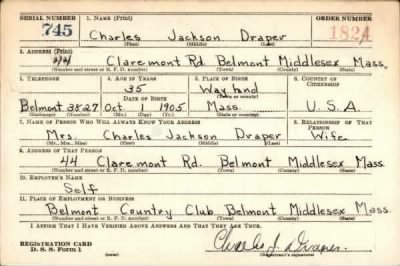 SERIAL NUMBER 1. NAME (Print) ORDER NUMBER
745 Charles Jackson Draper 1824
(First) (Middle) (Last)
2. ADDRESS (Print)
44 Claremont Rd. Belmont Middlesex Mass.
(Number and street or R. F. D. number) (Town) (County) (State)
3. TELEPHONE 4. AGE IN YEARS 5. PLACE OF BIRTH 6. COUNTRY OF CITIZENSHIP
35 Wayland
DATE OF BIRTH (Town or county)
Belmont 3827 Oct 1 1905 Mass. U.S.A
(Exchange) (Number) (Mo.) (Day) (Yr.) (State or country)
7. NAME OF PERSON WHO WILL ALWAYS KNOW YOUR ADDRESS 8. RELATIONSHIP OF THAT PERSON
Mrs. Charles Jackson Draper Wife
(Mr., Mrs., Miss) (First) (Middle) (Last)
9. ADDRESS OF THAT PERSON
44 Claremont Rd. Belmont Middlesex Mass
(Number and street or R. F. D. number) (Town) (County) (State)
10. EMPLOYER'S NAME
Self
11. PLACE OF EMPLOYMENT OR BUSINESS
Belmont Country Club Belmont Middlesex Mass
(Number and street or R. F. D. number) (Town) (County) (State)
I AFFIRM THAT I HAVE VERIFIED ABOVE ANSWERS AND THAT THEY ARE TRUE.
REGISTRATION CARD
D. S. S. Form 1 Charles J. Draper.
(Registrant's signature)